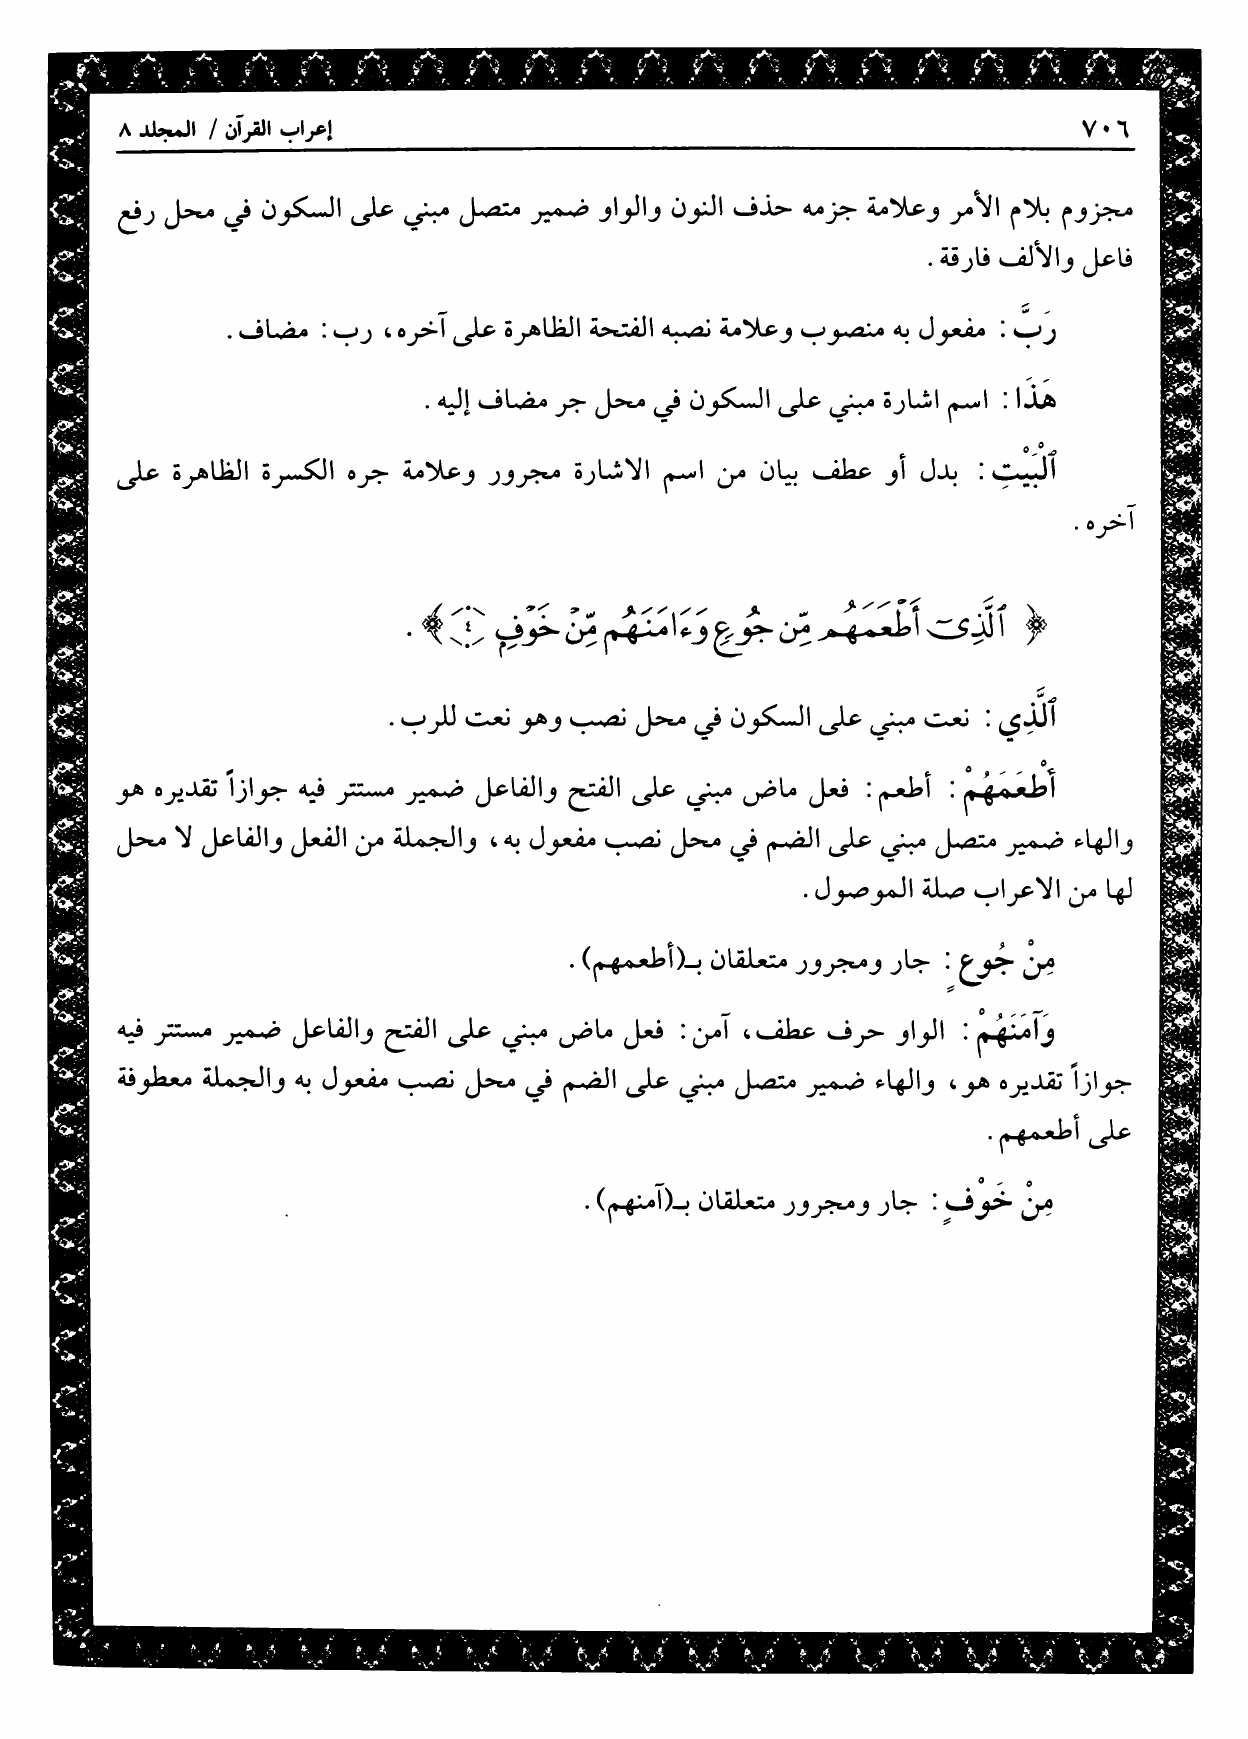 ٧٠٦ إعراب القرآن / المجلد ٨
مجزوم بلام الأمر وعلامة جزمه حذف النون والواو ضمير متصل مبني على السكون في محل رفع
فاعل والألف فارقة .
رَبَّ : مفعول به منصوب وعلامة نصبه الفتحة الظاهرة على آخره، رب: مضاف.
هَذَا : اسم اشارة مبني على السكون في محل جر مضاف إليه .
ٱلْبَيْتِ : بدل أو عطف بيان من اسم الاشارة مجرور وعلامة جره الكسرة الظاهرة على
آخره .
﴿ ٱلَّذِىٓ أَطْعَمَهُم مِّن جُوعٍ وَءَامَنَهُم مِّنْ خَوْفٍ ٤ ﴾ .
ٱلَّذِي : نعت مبني على السكون في محل نصب وهو نعت للرب .
أَطْعَمَهُمْ : أطعم : فعل ماض مبني على الفتح والفاعل ضمير مستتر فيه جوازاً تقديره هو
والهاء ضمير متصل مبني على الضم في محل نصب مفعول به، والجملة من الفعل والفاعل لا محل
لها من الاعراب صلة الموصول .
مِنْ جُوعٍ : جار ومجرور متعلقان بـ(أطعمهم) .
وَآمَنَهُمْ : الواو حرف عطف، آمن : فعل ماض مبني على الفتح والفاعل ضمير مستتر فيه
جوازاً تقديره هو، والهاء ضمير متصل مبني على الضم في محل نصب مفعول به والجملة معطوفة
على أطعمهم .
مِنْ خَوْفٍ : جار ومجرور متعلقان بـ(آمنهم) .